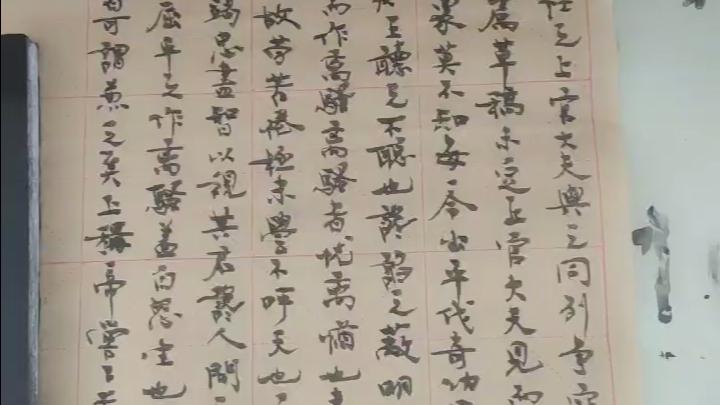 任之上官大夫與之同列爭
屬草稿未定上官大夫見而
眾莫不知每一令出平伐其功
王聽之不聰也讒諂之蔽明
而作離騷離騷者猶離憂也
故勞苦倦極未嘗不呼天也
竭忠盡智以事其君讒人間
屈平之作離騷蓋自怨生也
可謂兼之矣上稱帝嚳下